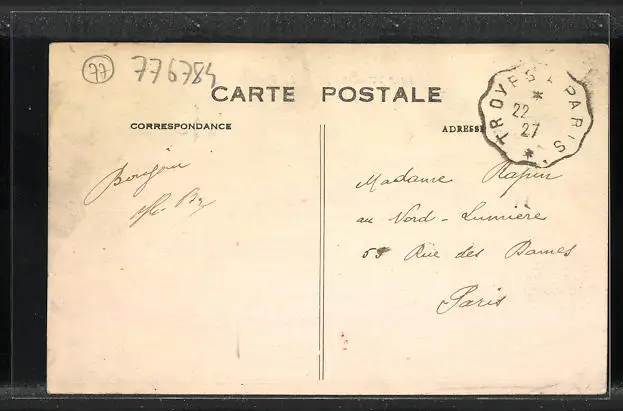 77
776784
CARTE POSTALE
CORRESPONDANCE
ADRESSE
TROYES A PARIS
22
27
Bonjour
Madame Rapin
au Nord-Lumière
55 Rue des Dames
Paris